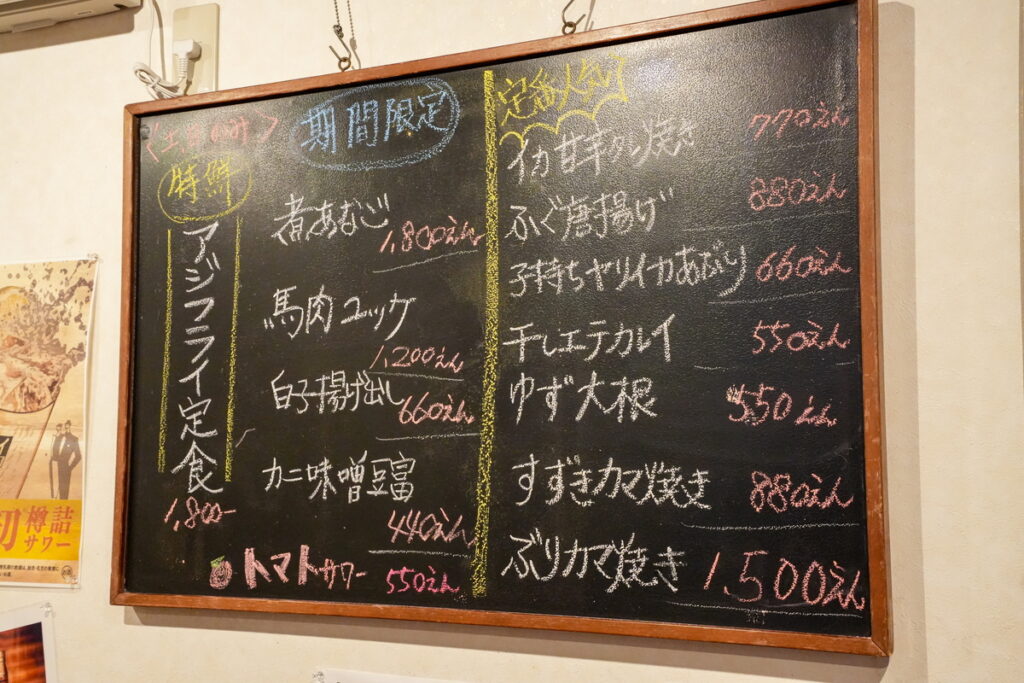 時鮮
アジフライ定食
1,800-
期間限定
煮あなご
1,800えん
馬肉ユッケ
1,200えん
白子揚げ出し
660えん
カニ味噌豆富
440えん
トマトサワー 550えん
定番人気
イカ甘辛タレ焼き 770えん
ふぐ唐揚げ 880えん
子持ちヤリイカあぶり 660えん
干しエテカレイ 550えん
ゆず大根 550えん
すずきカマ焼き 880えん
ぶりカマ焼き 1,500えん
樽詰
サワー